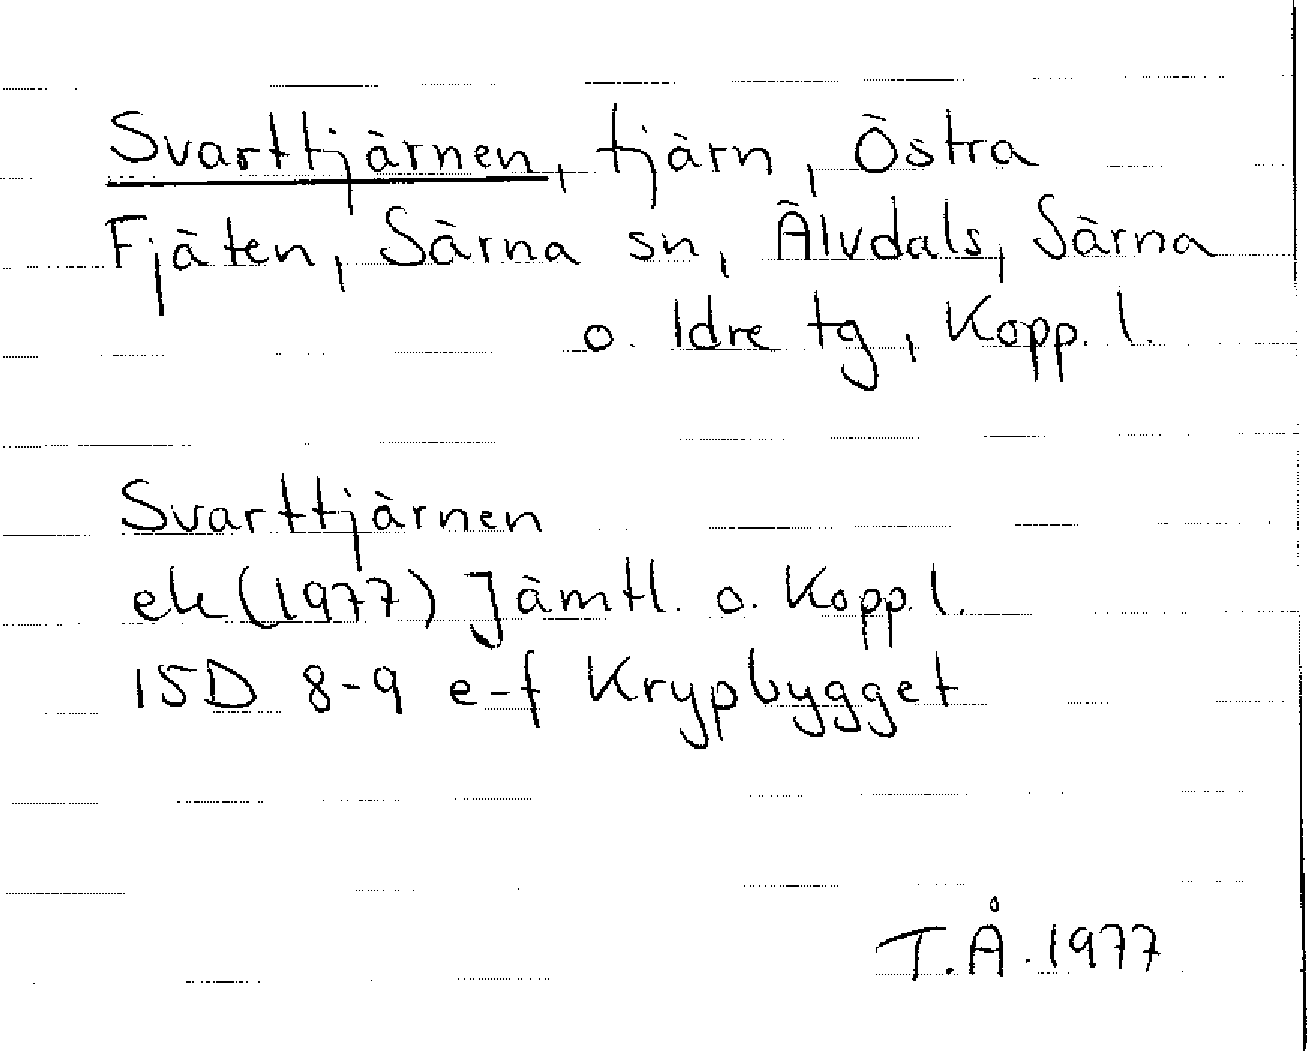 Svarttjärnen, tjärn, Östra
Fjäten, Särna sn, Älvdals, Särna
o. Idre tg, Kopp. l.
Svarttjärnen
ek (1977) Jämtl. o. Kopp. l.
15D 8-9 e-f Krypbygget
T.Å. 1977